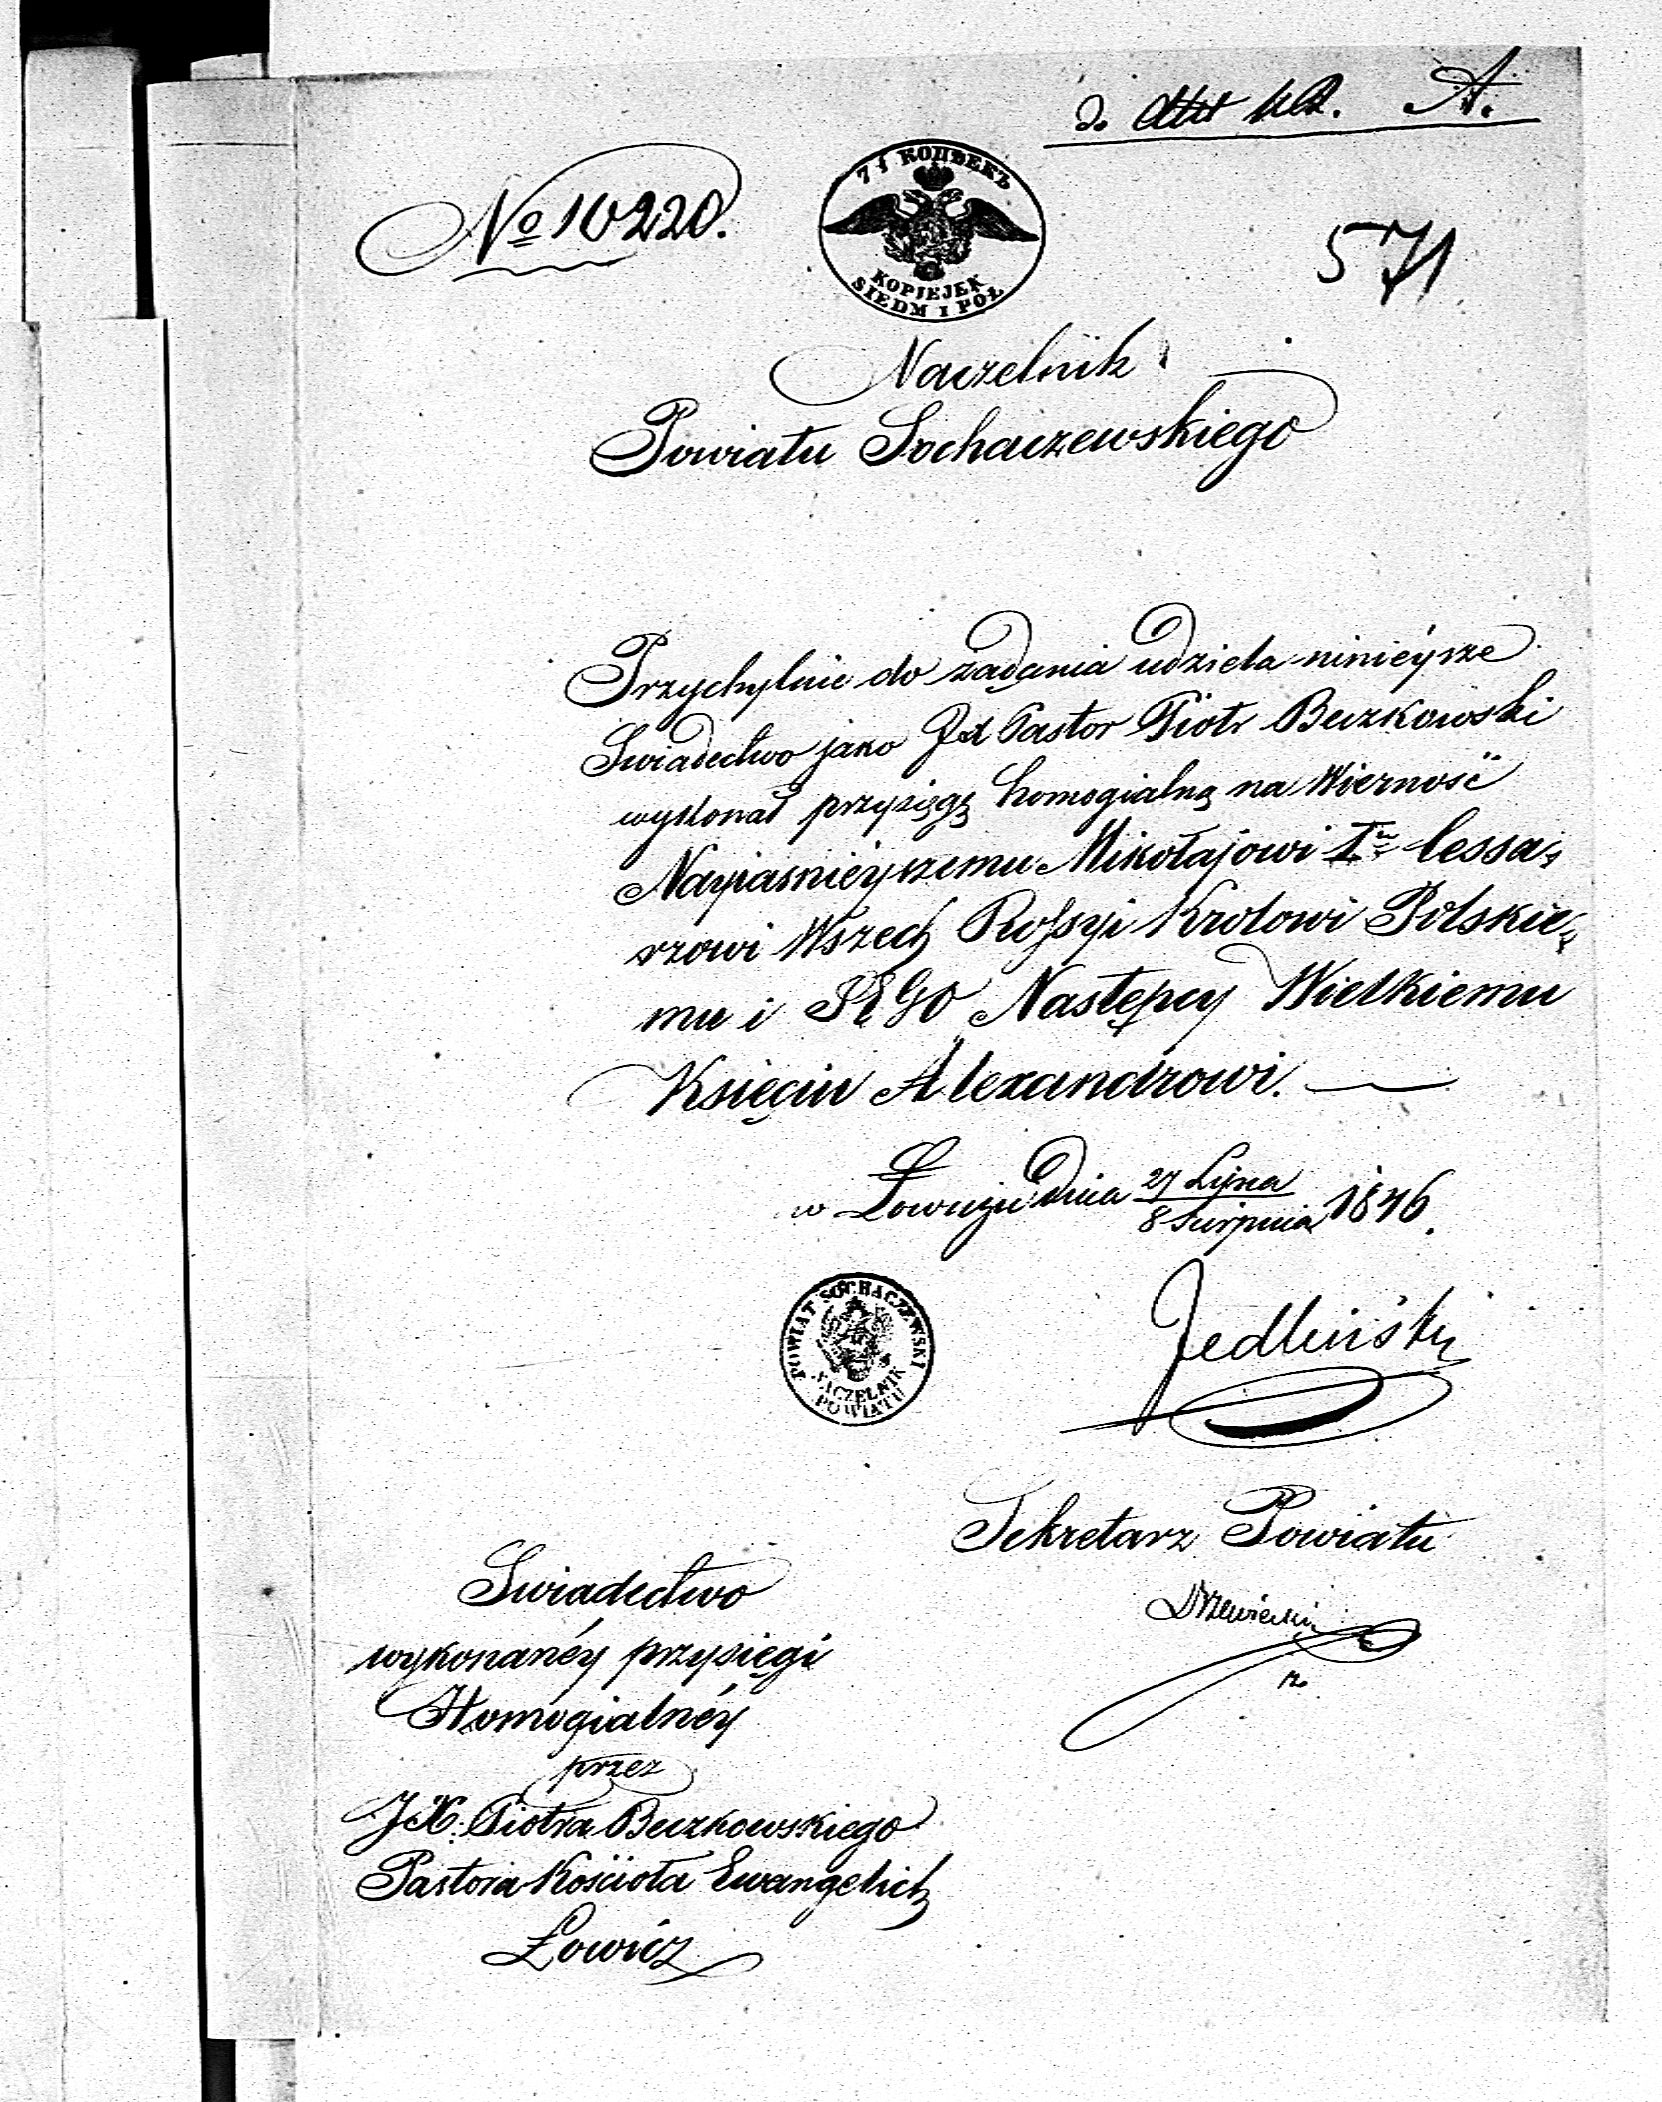 A.
№ 10220.
7½ КОПѢЕКЪ
KOPIEJEK
SIEDM I PÓŁ
571
Naczelnik
Powiatu Sochaczewskiego
Przychylnie do żądania udziela ninieysze
Swiadectwo jako Pastor Piotr Buczkowski
wykonał przysięgę homogialną na Wierność
Nayiasnieyszemu Mikołajowi I Cessa-
rzowi Wszech Rossyi Krolowi Polskie-
mu i JEGO Następcy Wielkiemu
Księciu Alexandrowi.
w Łowiczu dnia 27 Lipca
8 Sierpnia 1846.
POWIAT SOCHACZEWSKI
NACZELNIK
POWIATU
Jedliński
Sekretarz Powiatu
Drzewiecki
Swiadectwo
wykonanéy przysięgi
Homogialnéy
przez
JX. Piotra Buczkowskiego
Pastora Kościoła Ewangelich
Łowicz